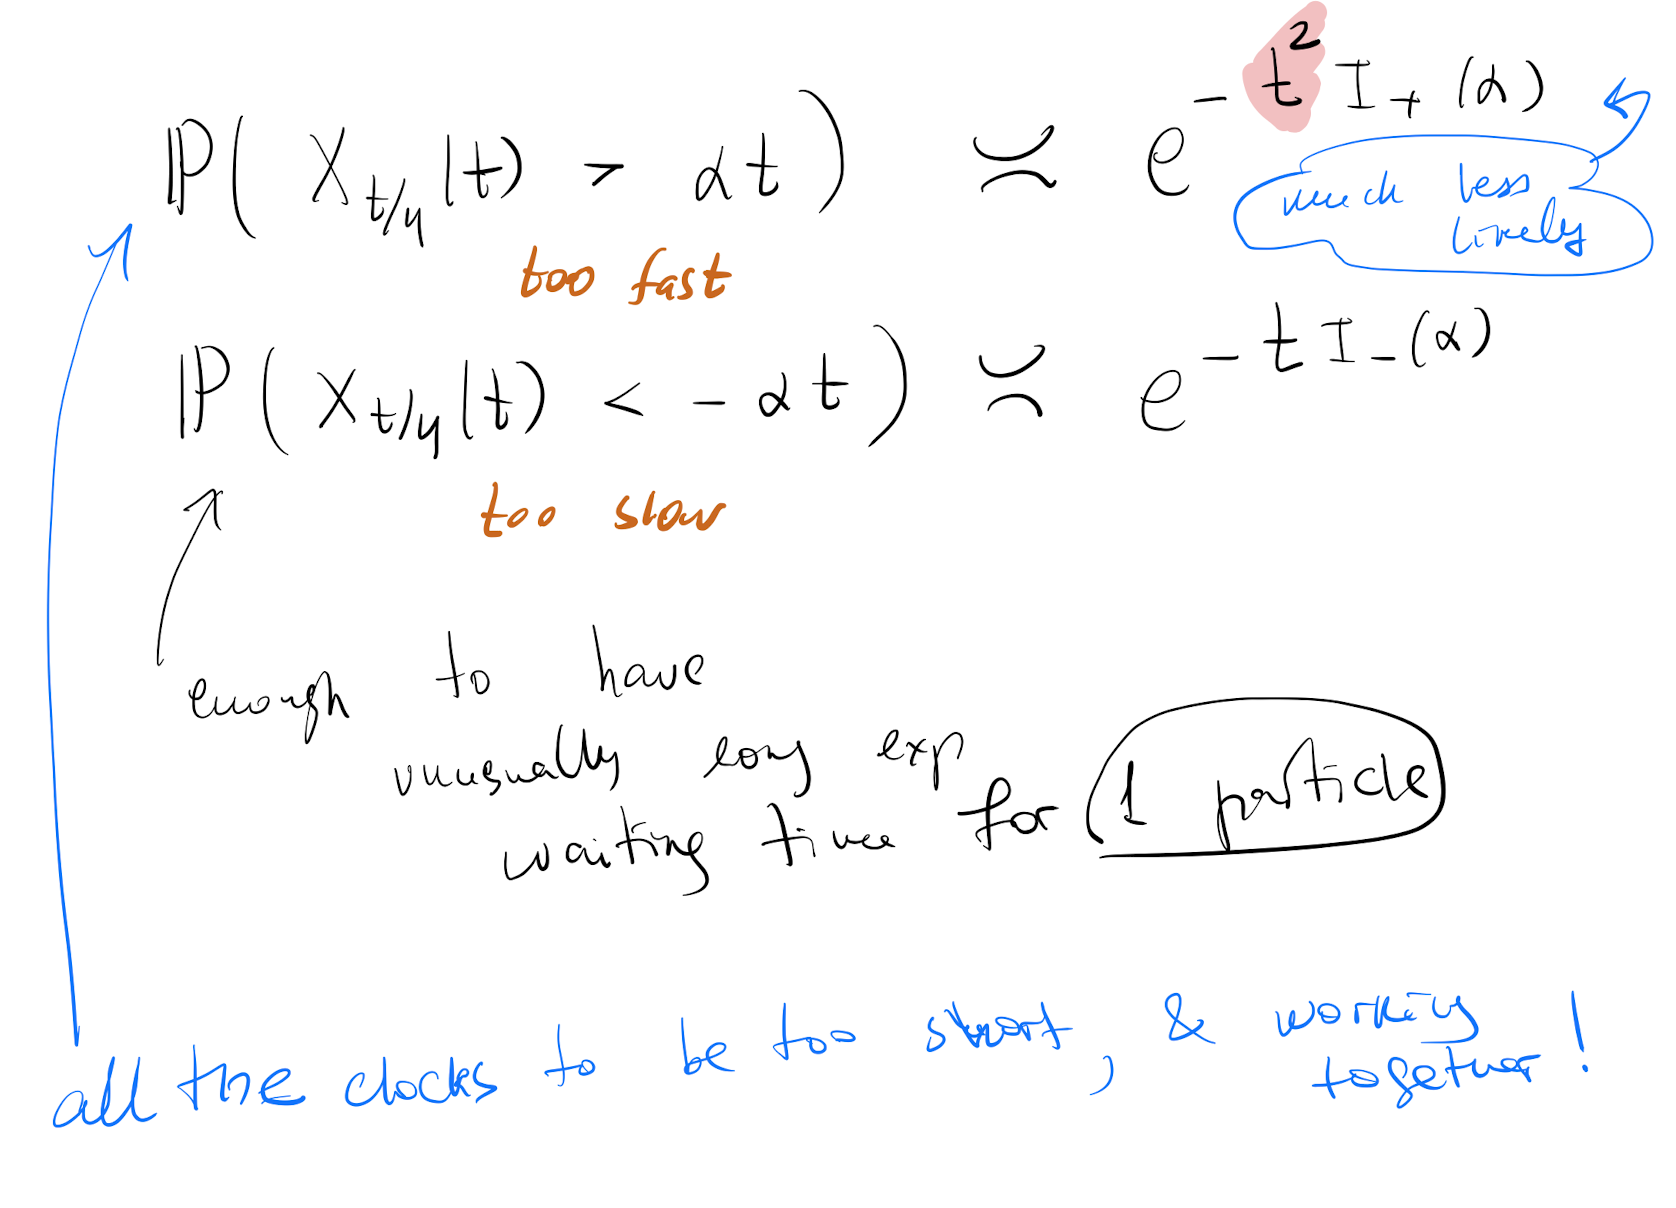 ℙ( X_{t/4}(t) > αt ) ≍ e^{-t² I_+(α)}
much less
likely
too fast
ℙ( X_{t/4}(t) < -αt ) ≍ e^{-t I_-(α)}
too slow
enough to have
unusually long exp
waiting time for 1 particle
all the clocks to be too short, & working
together!